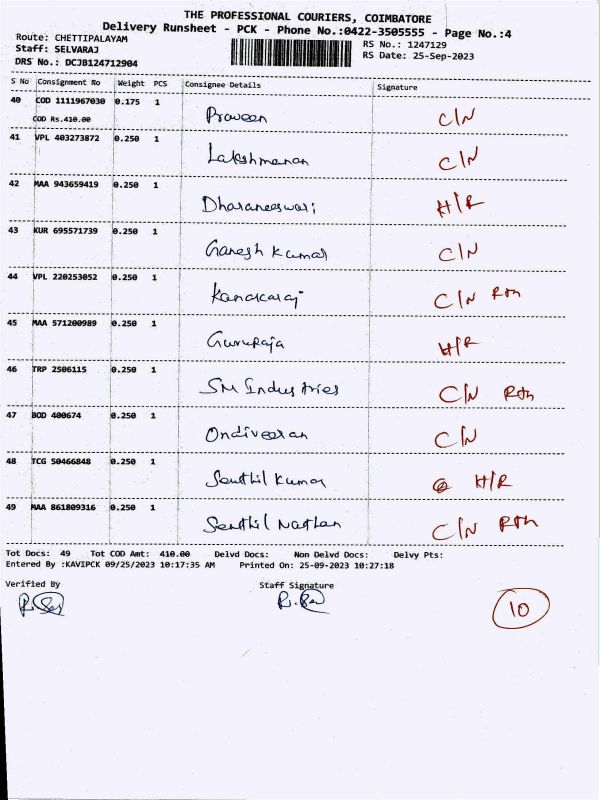 THE PROFESSIONAL COURIERS, COIMBATORE
Delivery Runsheet - PCK - Phone No.:0422-3505555 - Page No.:4
Route: CHETTIPALAYAM
RS No.: 1247129
Staff: SELVARAJ
RS Date: 25-Sep-2023
DRS No.: DCJB124712904
S No Consignment No Weight PCS Consignee Details Signature
40 COD 1111967030 0.175 1 Praveen C/N
COD Rs.410.00
41 VPL 403273872 0.250 1 Lakshmanan C/N
42 MAA 943659419 0.250 1 Dharaneeswari H/R
43 KUR 695571739 0.250 1 Ganesh Kumar C/N
44 VPL 220253052 0.250 1 Kanakaraj C/N Rtn
45 MAA 571200989 0.250 1 Gururaja H/R
46 TRP 2506115 0.250 1 SM Industries C/N Rtn
47 BOD 400674 0.250 1 Ondiveeran C/N
48 TCG 50466848 0.250 1 Senthil Kumar H/R
49 MAA 861809316 0.250 1 Senthil Nathan C/N Rtn
Tot Docs: 49 Tot COD Amt: 410.00 Delvd Docs: Non Delvd Docs: Delvy Pts:
Entered By :KAVIPCK 09/25/2023 10:17:35 AM Printed On: 25-09-2023 10:27:18
Verified By Staff Signature
10